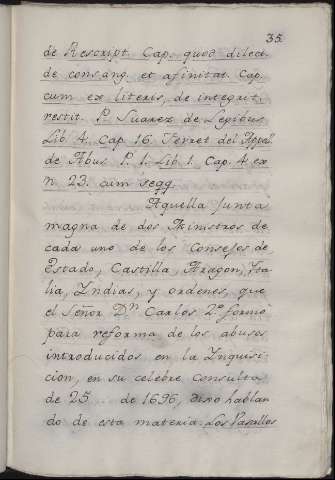 35
de Rescript. Cap. quod dilect.
de consang. et afinitat. Cap.
cum ex literis, de integrit.
restit. P. Suarez de Legibus
Lib. 4. Cap. 16. Ferret del
de Abus P. 1. Lib 1. Cap. 4 ex
n. 23. cum seqq.
Aquella Junta
magna de dos Ministros de
cada uno de los Consejos de
Estado, Castilla, Aragon, Ita
lia, Yndias, y ordenes, que
el Señor Dn. Carlos 2º. formó
para reforma de los abusos
introducidos en la Ynquisi
cion, en su celebre consulta
de 25 de 1696, dixo hablan
do de esta materia. Los